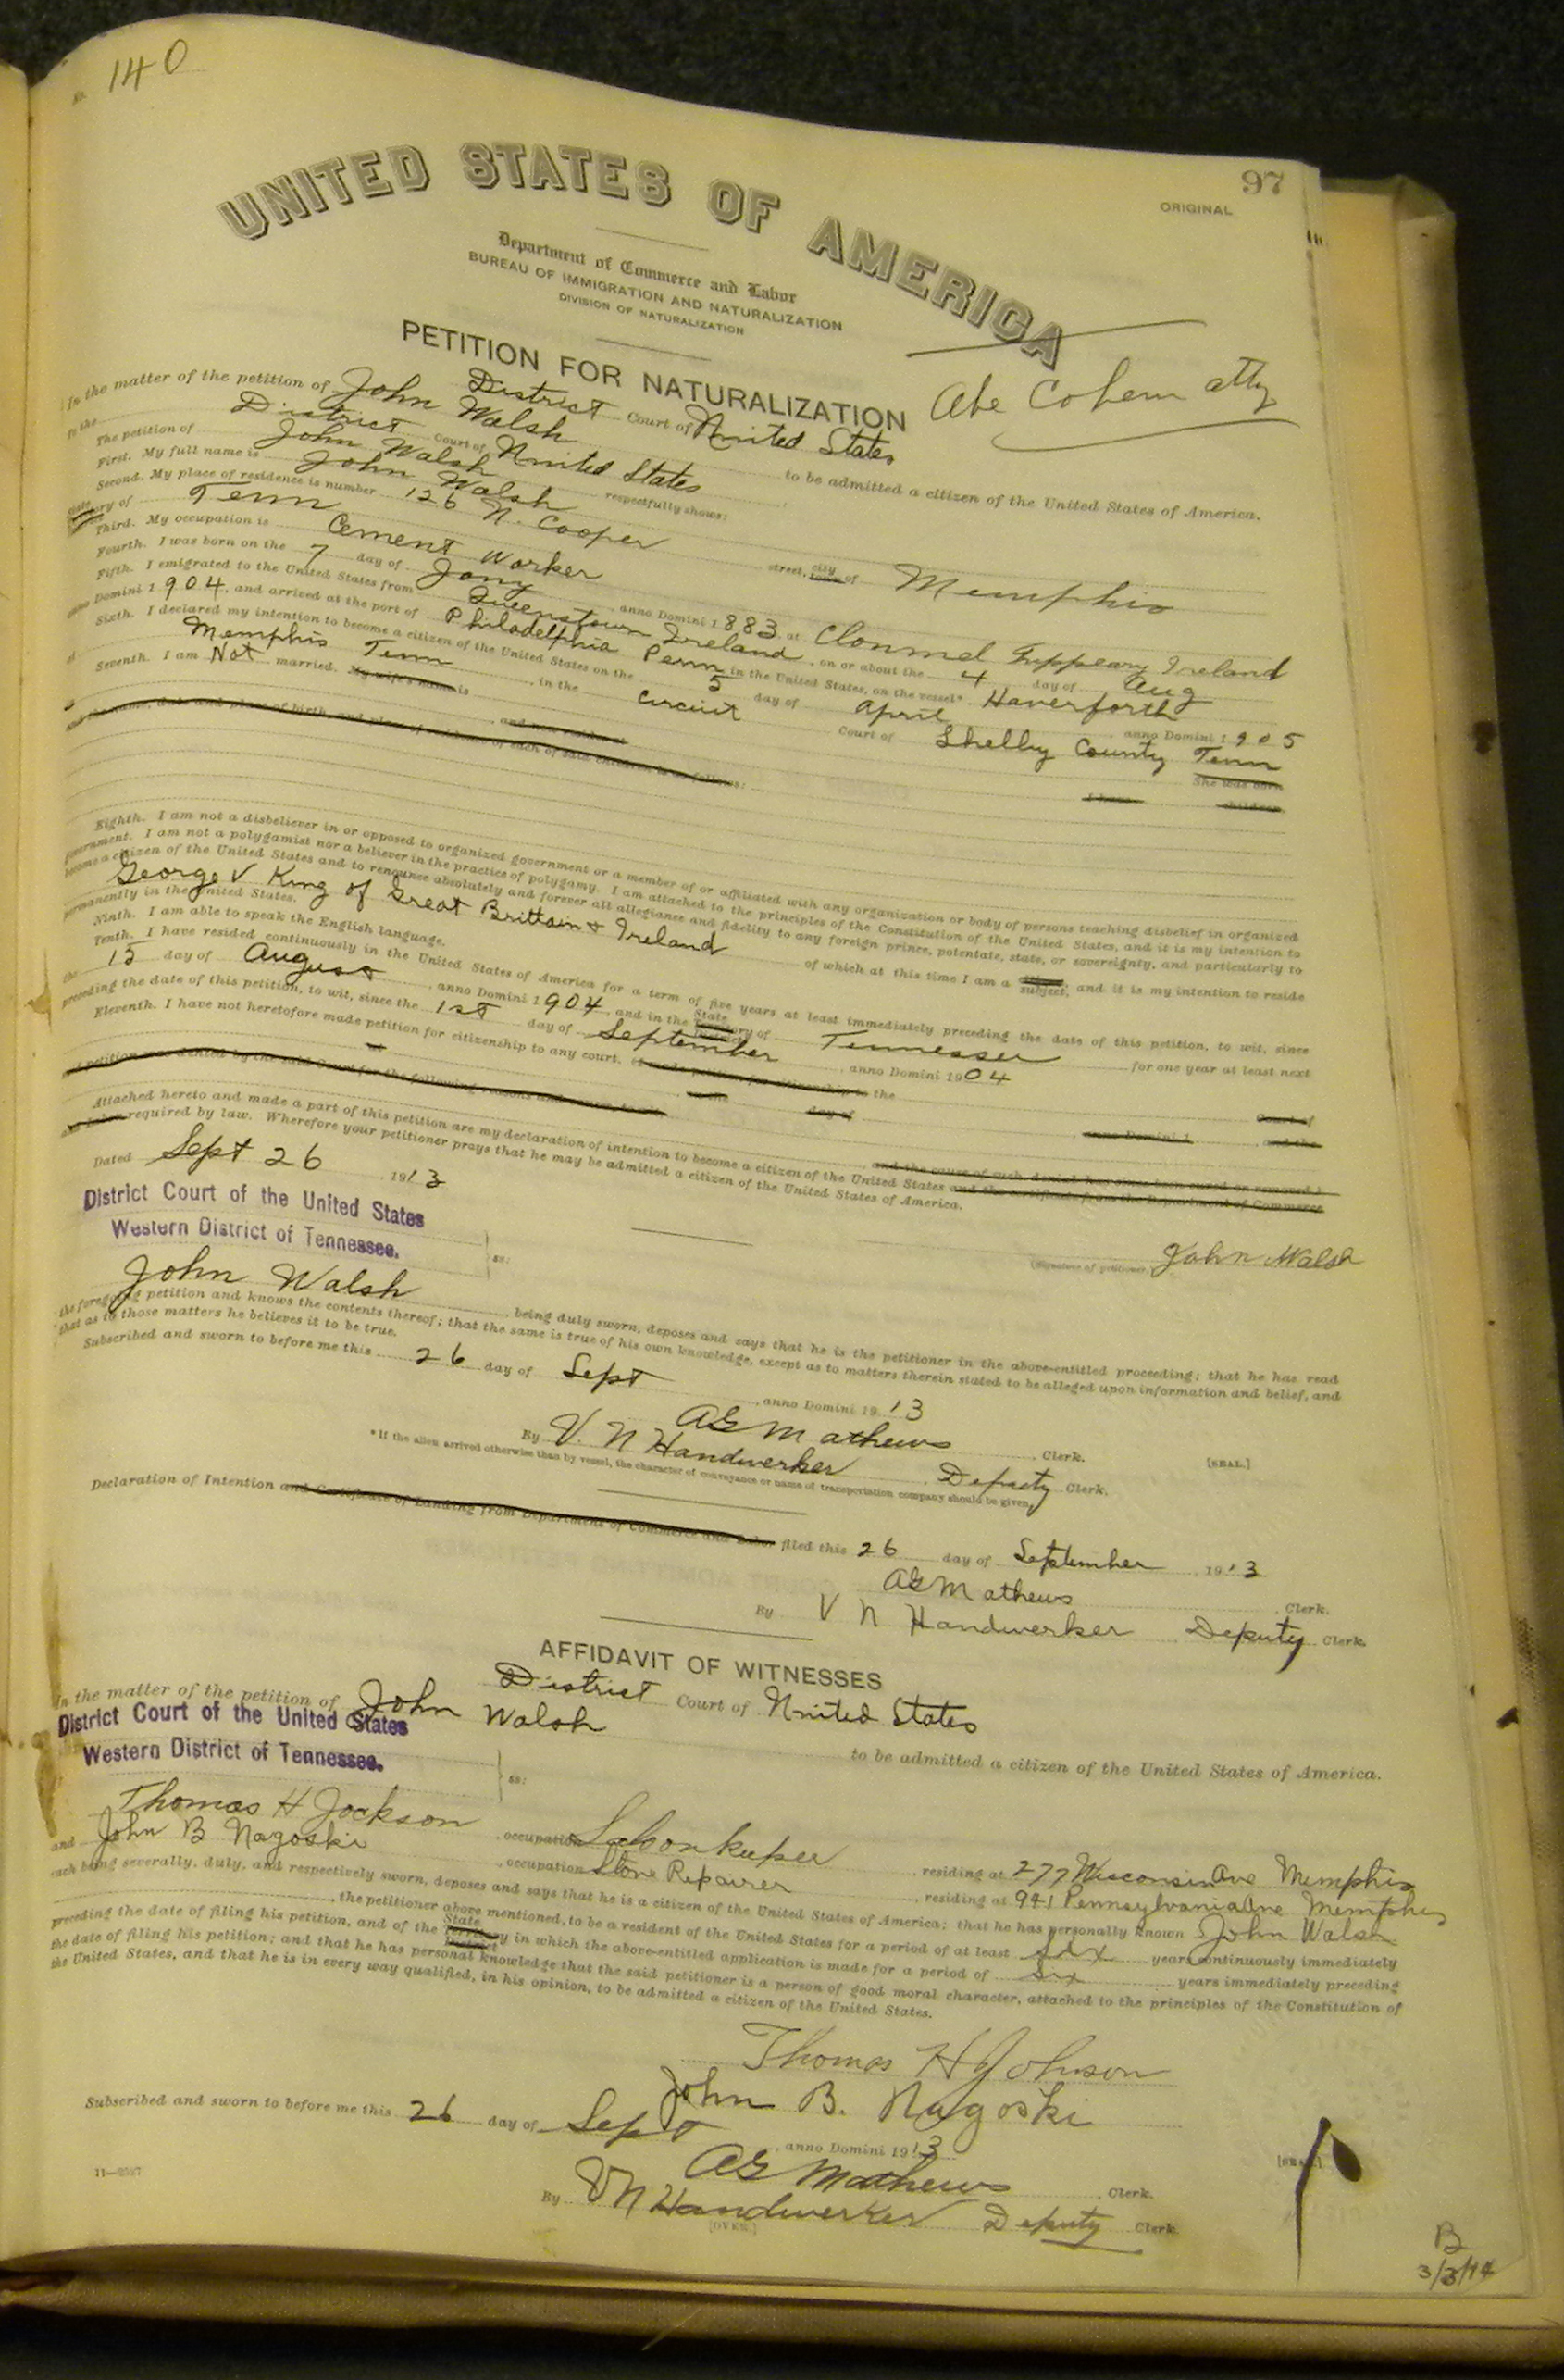 No. 140
97
ORIGINAL
UNITED STATES OF AMERICA
Department of Commerce and Labor
BUREAU OF IMMIGRATION AND NATURALIZATION
DIVISION OF NATURALIZATION
PETITION FOR NATURALIZATION
Abe Cohen atty
District Court of United States
In the matter of the petition of John Walsh to be admitted a citizen of the United States of America.
To the District Court of United States
The petition of John Walsh respectfully shows:
First. My full name is John Walsh
Second. My place of residence is number 126 N. Cooper street, city of Memphis
State of Tenn
Third. My occupation is Cement Worker
Fourth. I was born on the 7 day of Jany, anno Domini 1883, at Clonmel Tippeary Ireland
Fifth. I emigrated to the United States from Queenstown Ireland, on or about the 4 day of Aug
anno Domini 1904, and arrived at the port of Philadelphia Penn in the United States, on the vessel* Haverforth
Sixth. I declared my intention to become a citizen of the United States on the 5 day of April, anno Domini 1905
at Memphis Tenn, in the Circuit Court of Shelby County Tenn
Seventh. I am Not married. My wife's name is She was born
and now resides at I have children,
and the name, date and place of birth, and place of residence of each of said children is as follows:
Eighth. I am not a disbeliever in or opposed to organized government or a member of or affiliated with any organization or body of persons teaching disbelief in organized
government. I am not a polygamist nor a believer in the practice of polygamy. I am attached to the principles of the Constitution of the United States, and it is my intention to
become a citizen of the United States and to renounce absolutely and forever all allegiance and fidelity to any foreign prince, potentate, state, or sovereignty, and particularly to
George V King of Great Brittain & Ireland of which at this time I am a subject, and it is my intention to reside
permanently in the United States.
Ninth. I am able to speak the English language.
Tenth. I have resided continuously in the United States of America for a term of five years at least immediately preceding the date of this petition, to wit, since
the 15 day of August, anno Domini 1904, and in the State of Tennessee for one year at least next
preceding the date of this petition, to wit, since the 1st day of September, anno Domini 1904
Eleventh. I have not heretofore made petition for citizenship to any court. (I made petition for citizenship to the Court of
at on the day of anno Domini 1 and the
said petition was denied by the said Court for the following reasons and causes, to wit, and the cause of such denial has since been cured or removed.)
Attached hereto and made a part of this petition are my declaration of intention to become a citizen of the United States and the certificate from the Department of Commerce
and Labor required by law. Wherefore your petitioner prays that he may be admitted a citizen of the United States of America.
Dated Sept 26, 1913
(Signature of petitioner) John Walsh
District Court of the United States
Western District of Tennessee. ss:
John Walsh, being duly sworn, deposes and says that he is the petitioner in the above-entitled proceeding; that he has read
the foregoing petition and knows the contents thereof; that the same is true of his own knowledge, except as to matters therein stated to be alleged upon information and belief, and
that as to those matters he believes it to be true.
Subscribed and sworn to before me this 26 day of Sept, anno Domini 1913
[SEAL.]
AG Mathews, Clerk.
By V. N Handwerker Deputy Clerk.
*If the alien arrived otherwise than by vessel, the character of conveyance or name of transportation company should be given.
Declaration of Intention and Certificate of Landing from Department of Commerce and Labor filed this 26 day of September, 1913
AG Mathews, Clerk.
By V N Handwerker Deputy Clerk.
AFFIDAVIT OF WITNESSES
District Court of United States
In the matter of the petition of John Walsh to be admitted a citizen of the United States of America.
District Court of the United States
Western District of Tennessee. ss:
Thomas H Jockson, occupation Saloonkeeper, residing at 277 Wisconsin Ave Memphis
and John B Nagoski, occupation Stove Repairer, residing at 941 Pennsylvania Ave Memphis
each being severally, duly, and respectively sworn, deposes and says that he is a citizen of the United States of America; that he has personally known John Walsh
, the petitioner above mentioned, to be a resident of the United States for a period of at least six years continuously immediately
preceding the date of filing his petition, and of the State in which the above-entitled application is made for a period of six years immediately preceding
the date of filing his petition; and that he has personal knowledge that the said petitioner is a person of good moral character, attached to the principles of the Constitution of
the United States, and that he is in every way qualified, in his opinion, to be admitted a citizen of the United States.
Thomas H Johnson
John B. Nagoski
Subscribed and sworn to before me this 26 day of Sept, anno Domini 1913
[SEAL.]
AG Mathews, Clerk.
By V N Handwerker Deputy Clerk.
[OVER.]
B
3/3/14